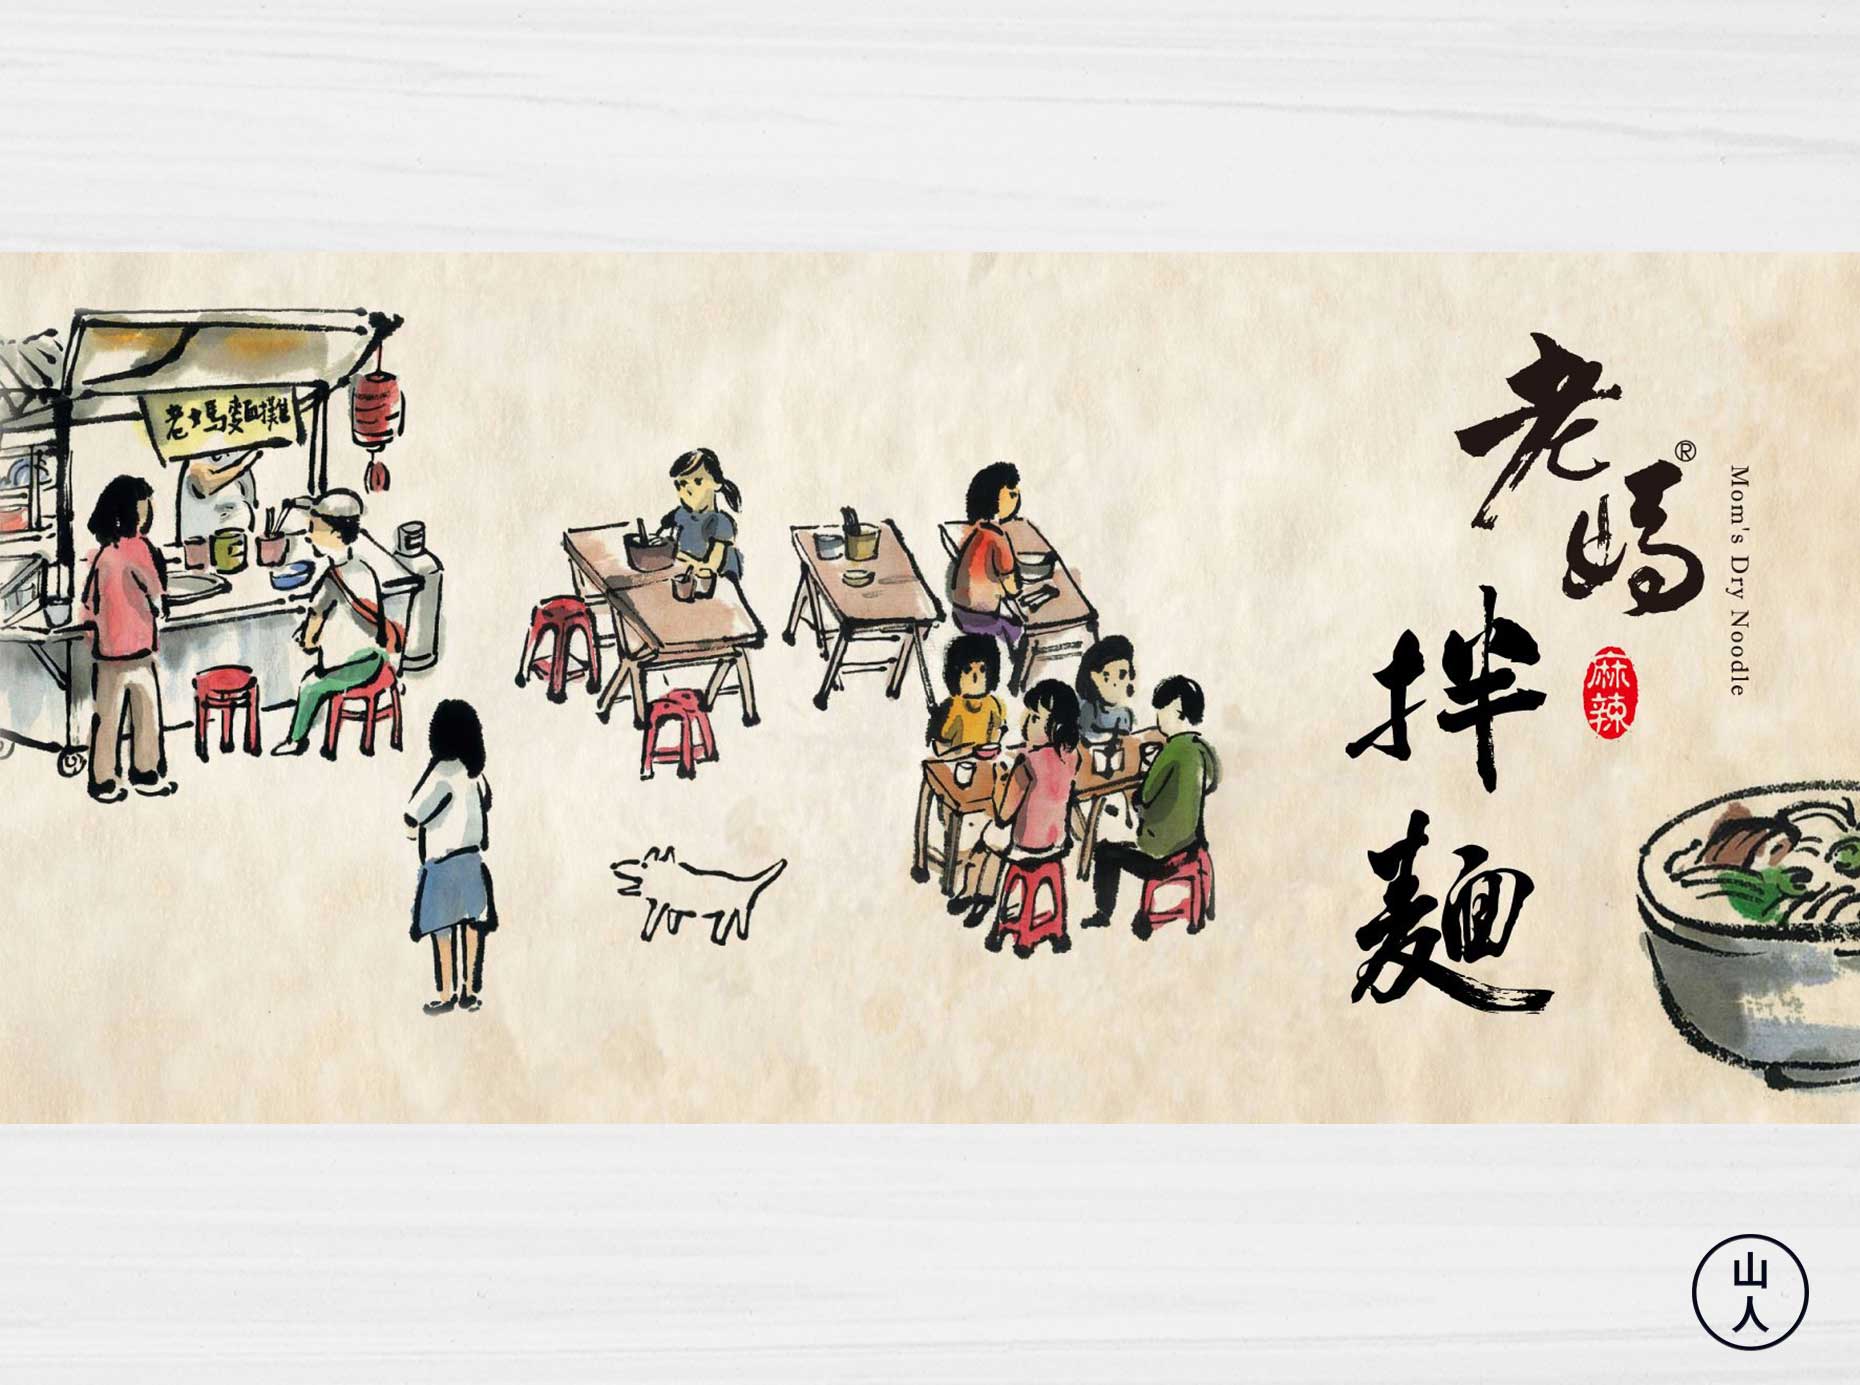 老媽麵攤
老媽®
拌麵
麻辣
Mom's Dry Noodle
山人